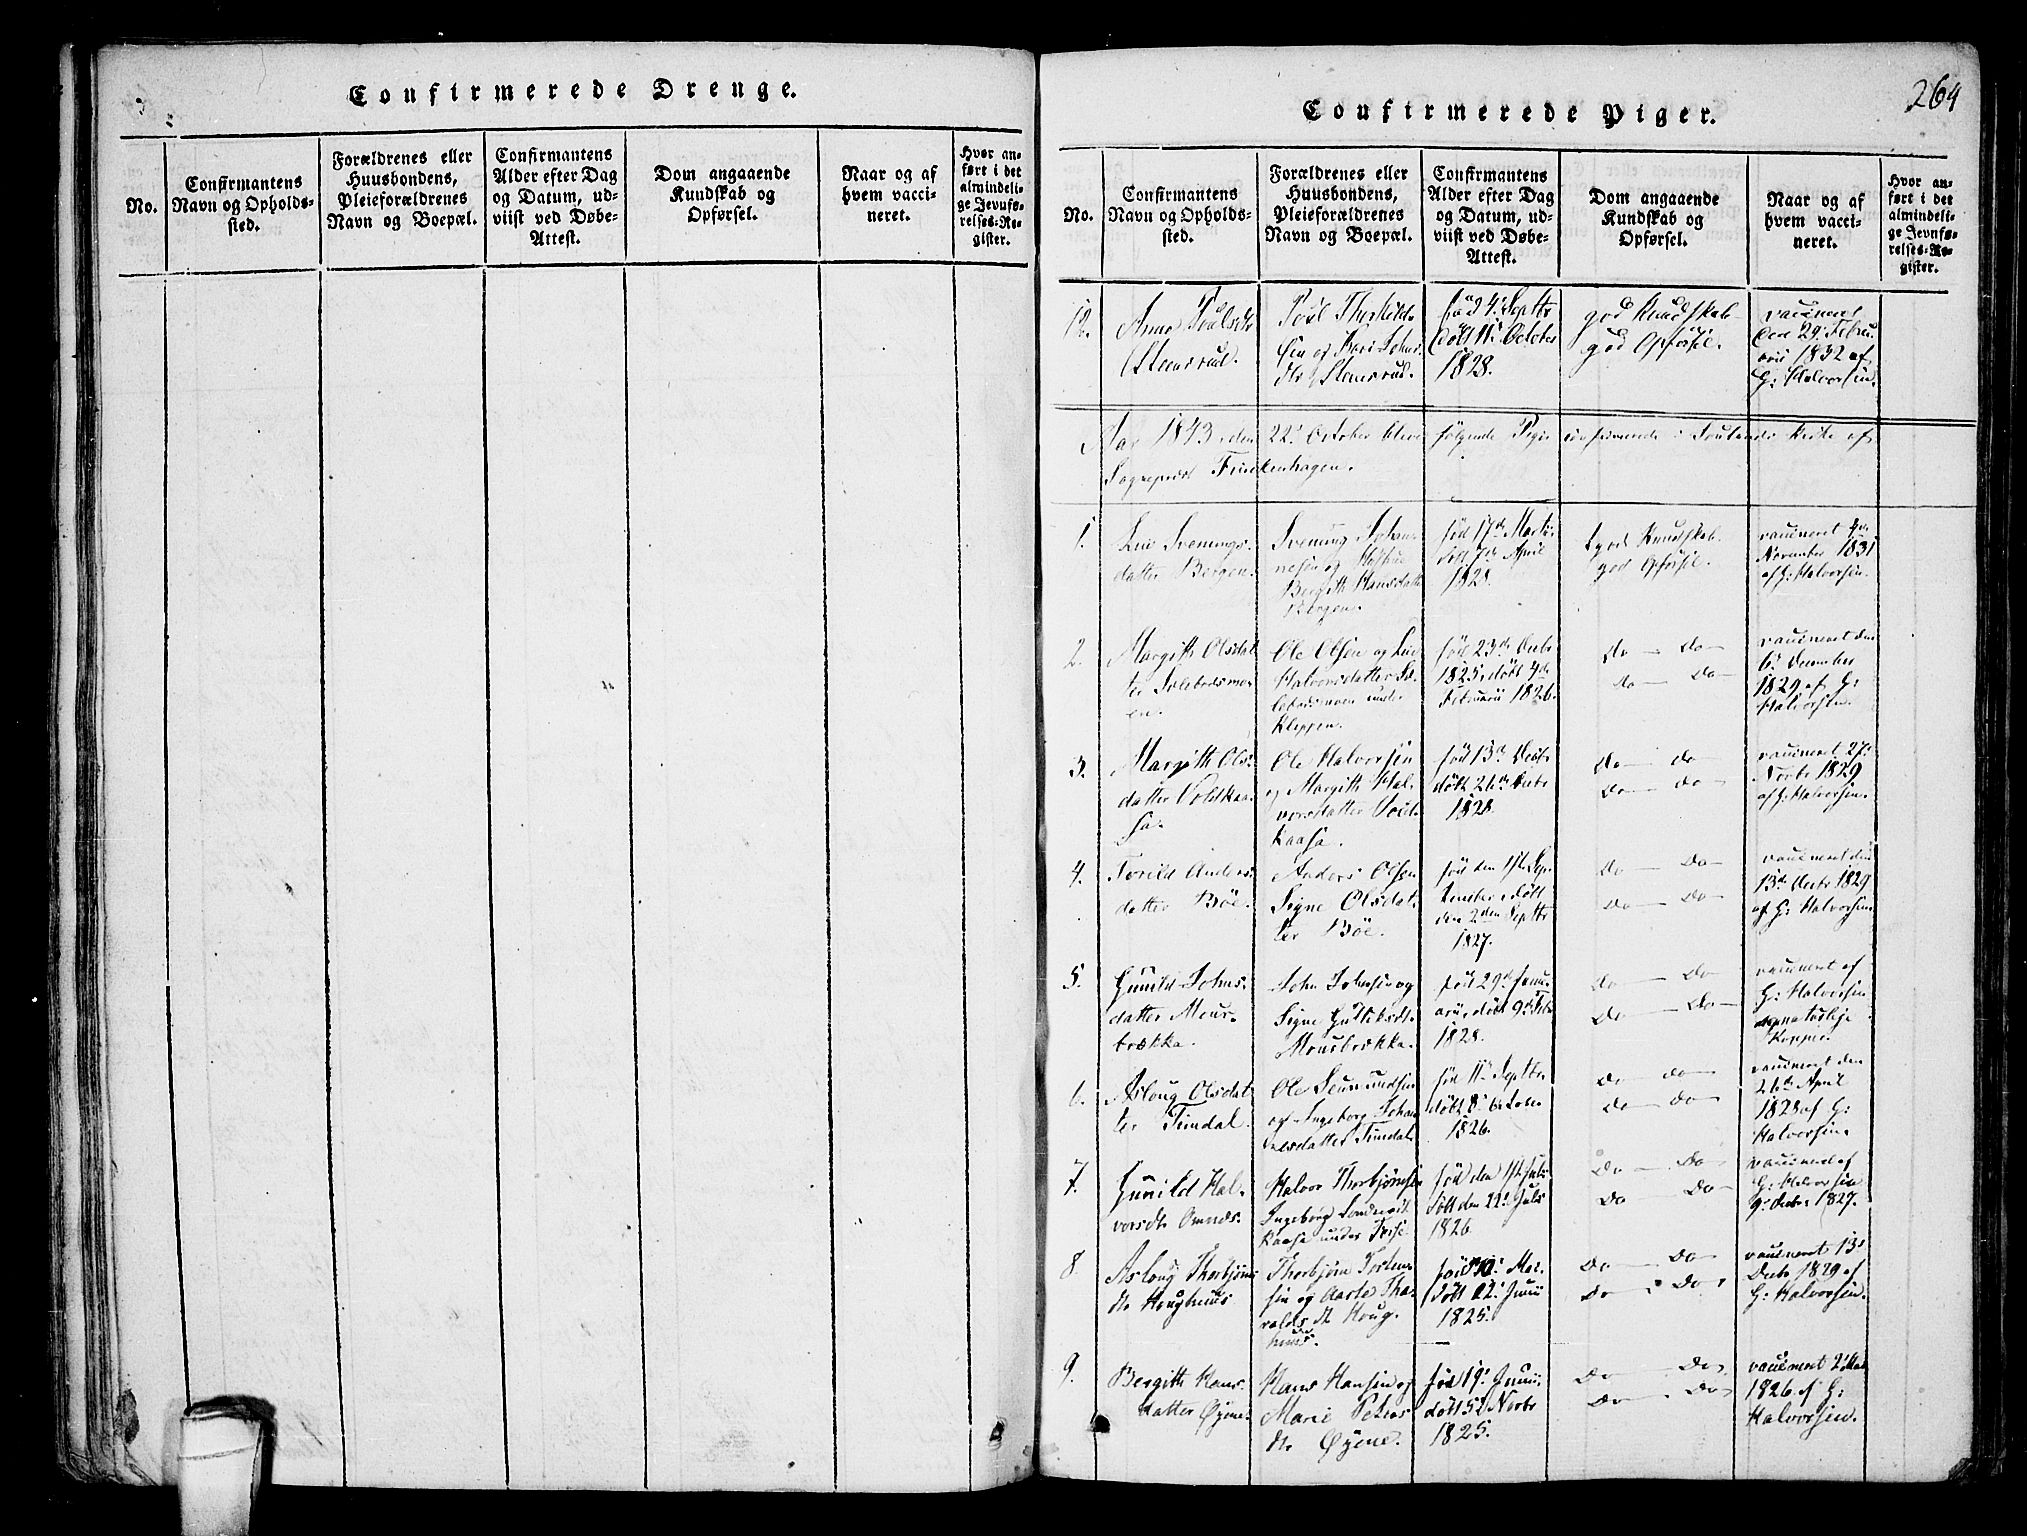 Confirmerede Drenge.
No.
Confirmantens
Navn og Opholds-
sted.
Forældrenes eller
Huusbondens,
Pleieforældrenes
Navn og Boepæl.
Confirmantens
Alder efter Dag
og Datum, ud-
viist ved Døbe-
Attest.
Dom angaaende
Kundskab og
Opførsel.
Naar og af
hvem vacci-
neret.
Hvor an-
ført i det
almindeli-
ge Jevnfø-
relses-Re-
gister.
264
Confirmerede Piger.
No.
Confirmantens
Navn og Opholds-
sted.
Forældrenes eller
Huusbondens,
Pleieforældrenes
Navn og Boepæl.
Confirmantens
Alder efter Dag
og Datum, ud-
viist ved Døbe-
Attest.
Dom angaaende
Kundskab og
Opførsel.
Naar og af
hvem vacci-
neret.
Hvor an-
ført i det
almindeli-
ge Jevnfø-
relses-Re-
gister.
12.
Anne
Steensrud.
Kari Johns
Steensrud.
fød 4. Septbr
døbt 11. October
1828.
god Kundskab
god Opførsel.
vaccineret
den 29. Febru
arii 1832 af
H: Halvorsen.
Aar 1843, den 22. October bleve følgende Piger confirmerede i Kirke af
Sognepræst Finckenhagen.
1.
Svenings-
datter Bergen.
Svening Johan-
nesen og Hustrue
Bergith Hansdatter
Bergen.
fød 17de Martii
døbt 7de April
1828.
god Kundskab
god Opførsel.
vaccineret 4de
November 1831
af H: Halvorsen.
2.
Margith Olsdat
ter
en.
Ole Olsen og
Halvorsdatter
under
Kleppen.
fød 23de Decbr
1825, døbt 4de
Februarii 1826.
do — do —
do — do —
vaccineret den
6te December
1829 af H:
Halvorsen.
3.
Margith Ols-
datter Voldkaa-
sa.
Ole Halvorsen
og Margith Hal-
vorsdatter Vold-
kaasa.
fød 13de Decbr
døbt 26de Decbr
1828.
do — do —
do — do —
vaccineret 27.
Novbr 1829
af H: Halvorsen.
4.
Torild Anders-
datter Bøe.
Anders Olsen
Signe Olsdat-
ter Bøe.
fød den 1ste Sep-
tember, døbt
den 2den Septbr
1827.
do — do —
do — do —
vaccineret den
13de Decbr 1829
af H: Halvorsen
5.
Gunild Johns-
datter
brækka.
John Johnsen og
Signe
fød 29de Janu-
arii, døbt 9de Febr
1828.
do — do
do — do —
vaccineret af
H: Halvorsen
naturlige
Kopper.
6.
Asloug Olsdat-
ter Tindal.
Ole
og Ingeborg Johan-
nesdatter Tindal.
fød 11te Septbr
døbt 8. October
1826.
do — do —
do — do —
vaccineret den
26de April
1828 af H:
Halvorsen.
7.
Gunild Hal-
vorsdtr
Halvor Thorbjørnsen
Ingeborg
kaasa under
fød den 1ste Julii
døbt den 22. Julii
1826
do — do —
do — do —
vaccineret af
H: Halvorsen
9. Decbr 1827.
8.
Asloug Thorbjørns
dtr Houghuus
Thorbjørn
sen og Aaste Tha-
ralds dtr Houg-
huus.
fød 10. Mai
døbt 12. Junii
1825.
do — do —
do — do
vaccineret 13.
Decbr 1829 af
H: Halvorsen.
9.
Bergith Hans-
datter Øyene.
Hans Hansen og
Marie Peters
dtr Øyene.
fød 19. Junii
døbt 5. Novbr
1825.
do — do
do — do
vaccineret 2. Mai
1826 af H:
Halvorsen.